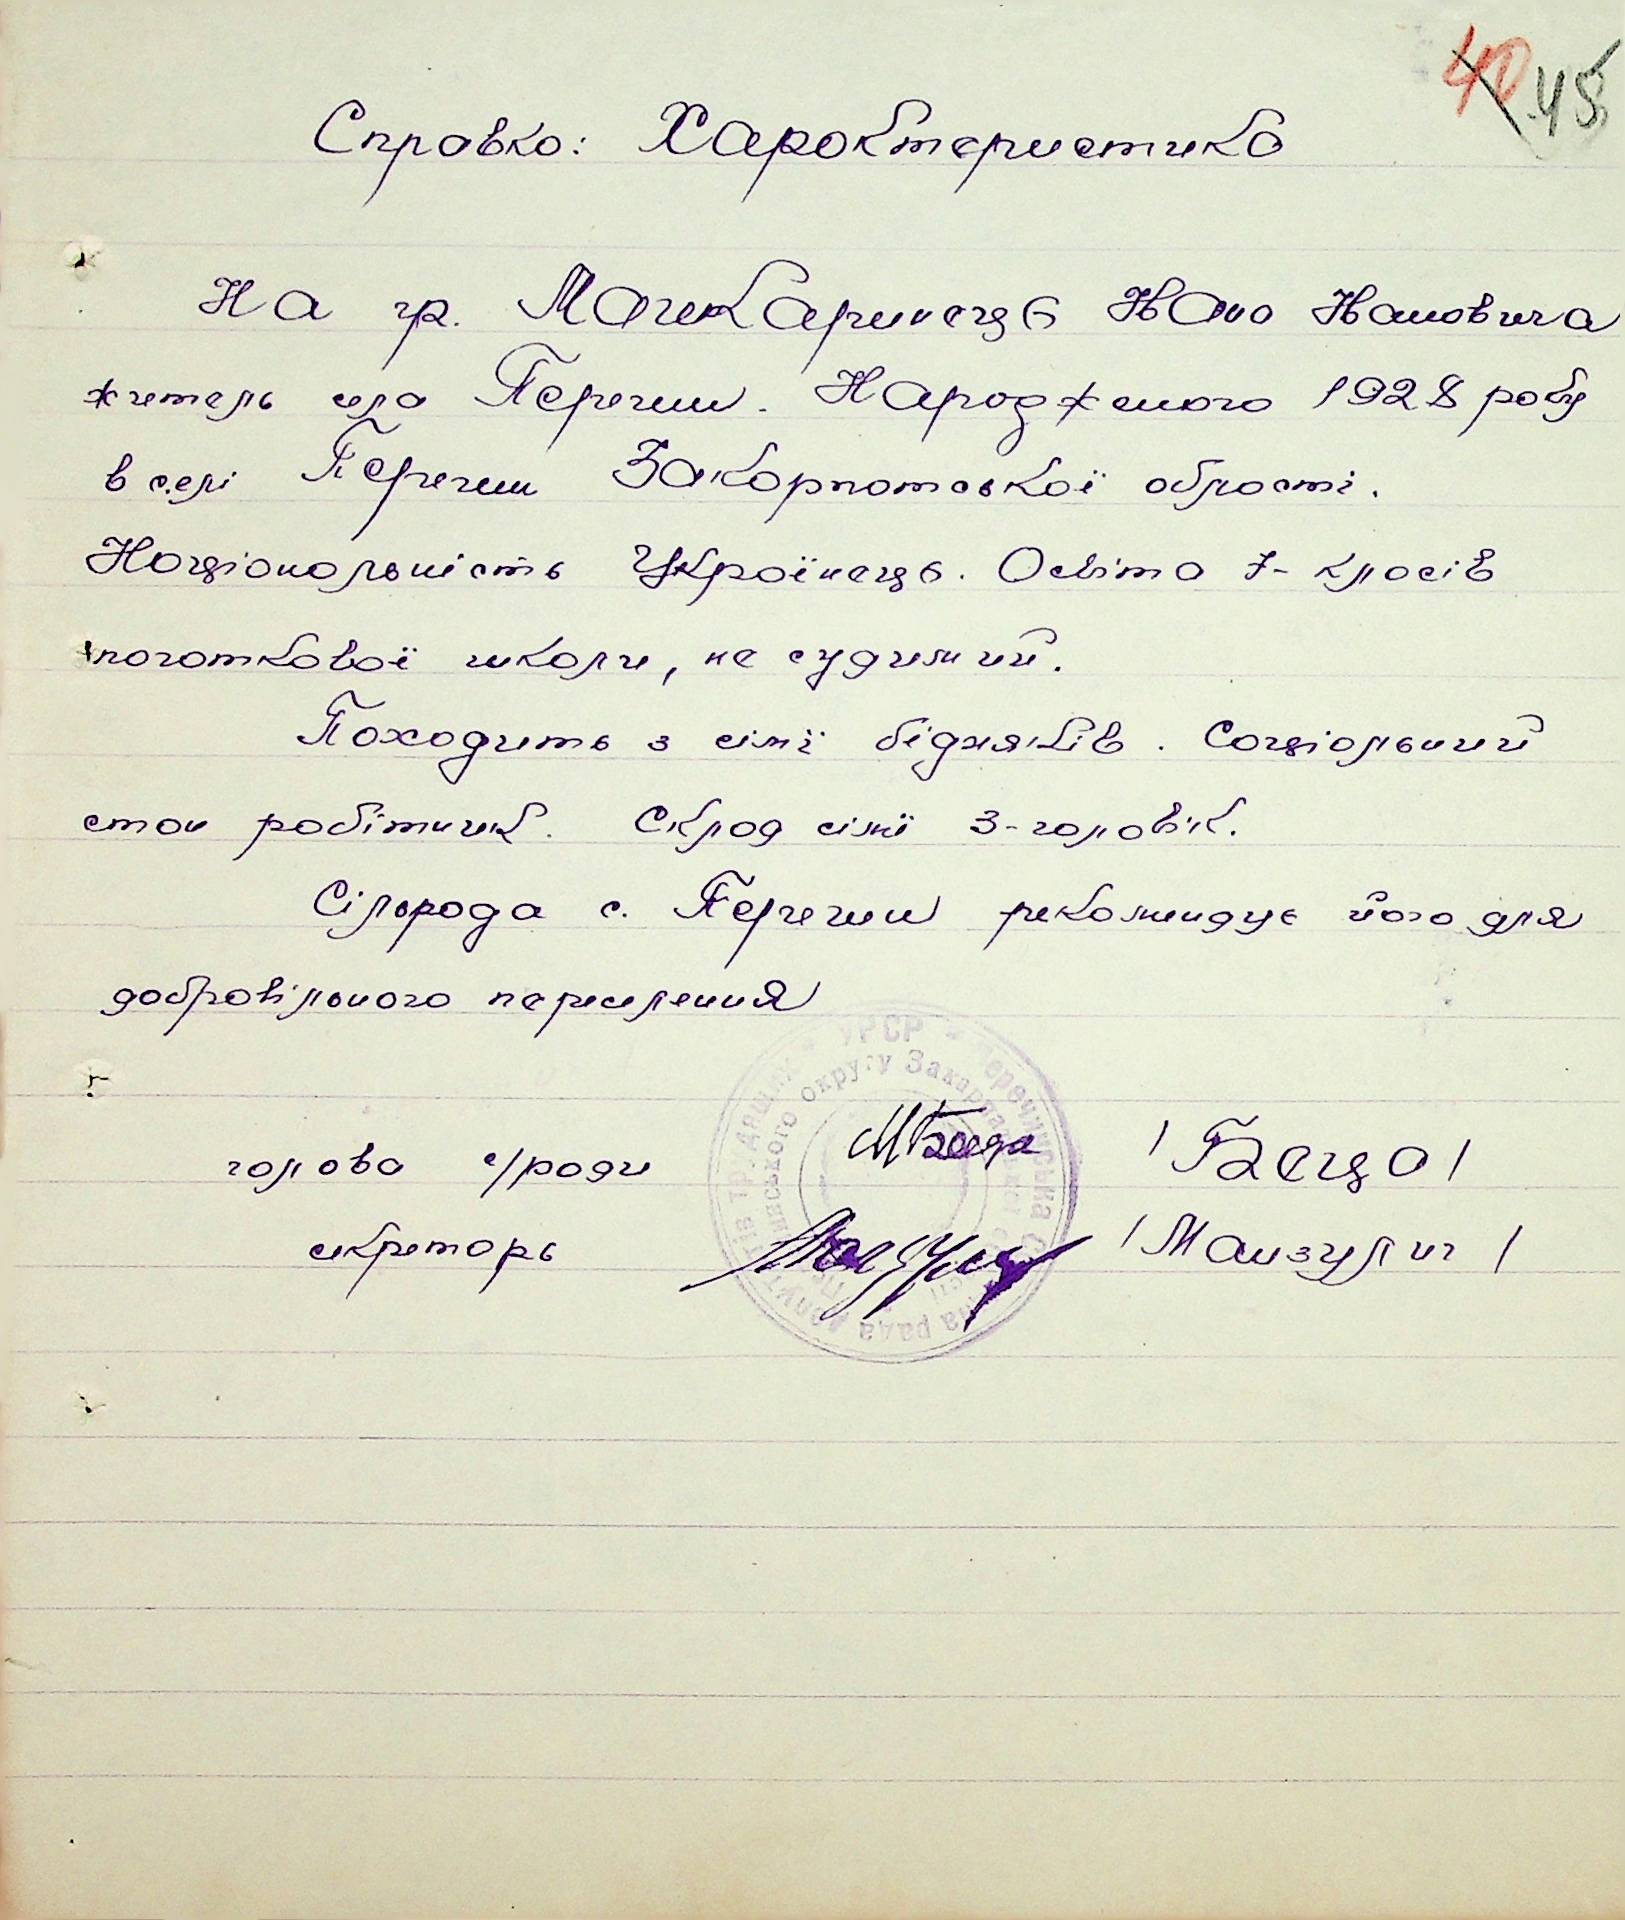 40 45
Справка: Характеристика
На гр. Мачкаринець Івана Івановича
житель села Перечин. Народженого 1928 року
в селі Перечин Закарпатської області.
Національність Українець. Освіта 7- класів
початкової школи, не судимий.
Походить з сімї бідняків. Соціальний
стан робітник. Склад сімї 3-чоловік.
Сільрада с. Перечин рекомендує його для
добровільного переселення
УРСР * Перечинська рада депутатів трудящих
округу Закарпатської області
голова с/ради МБеца /Беца/
секретарь /Манзулич/